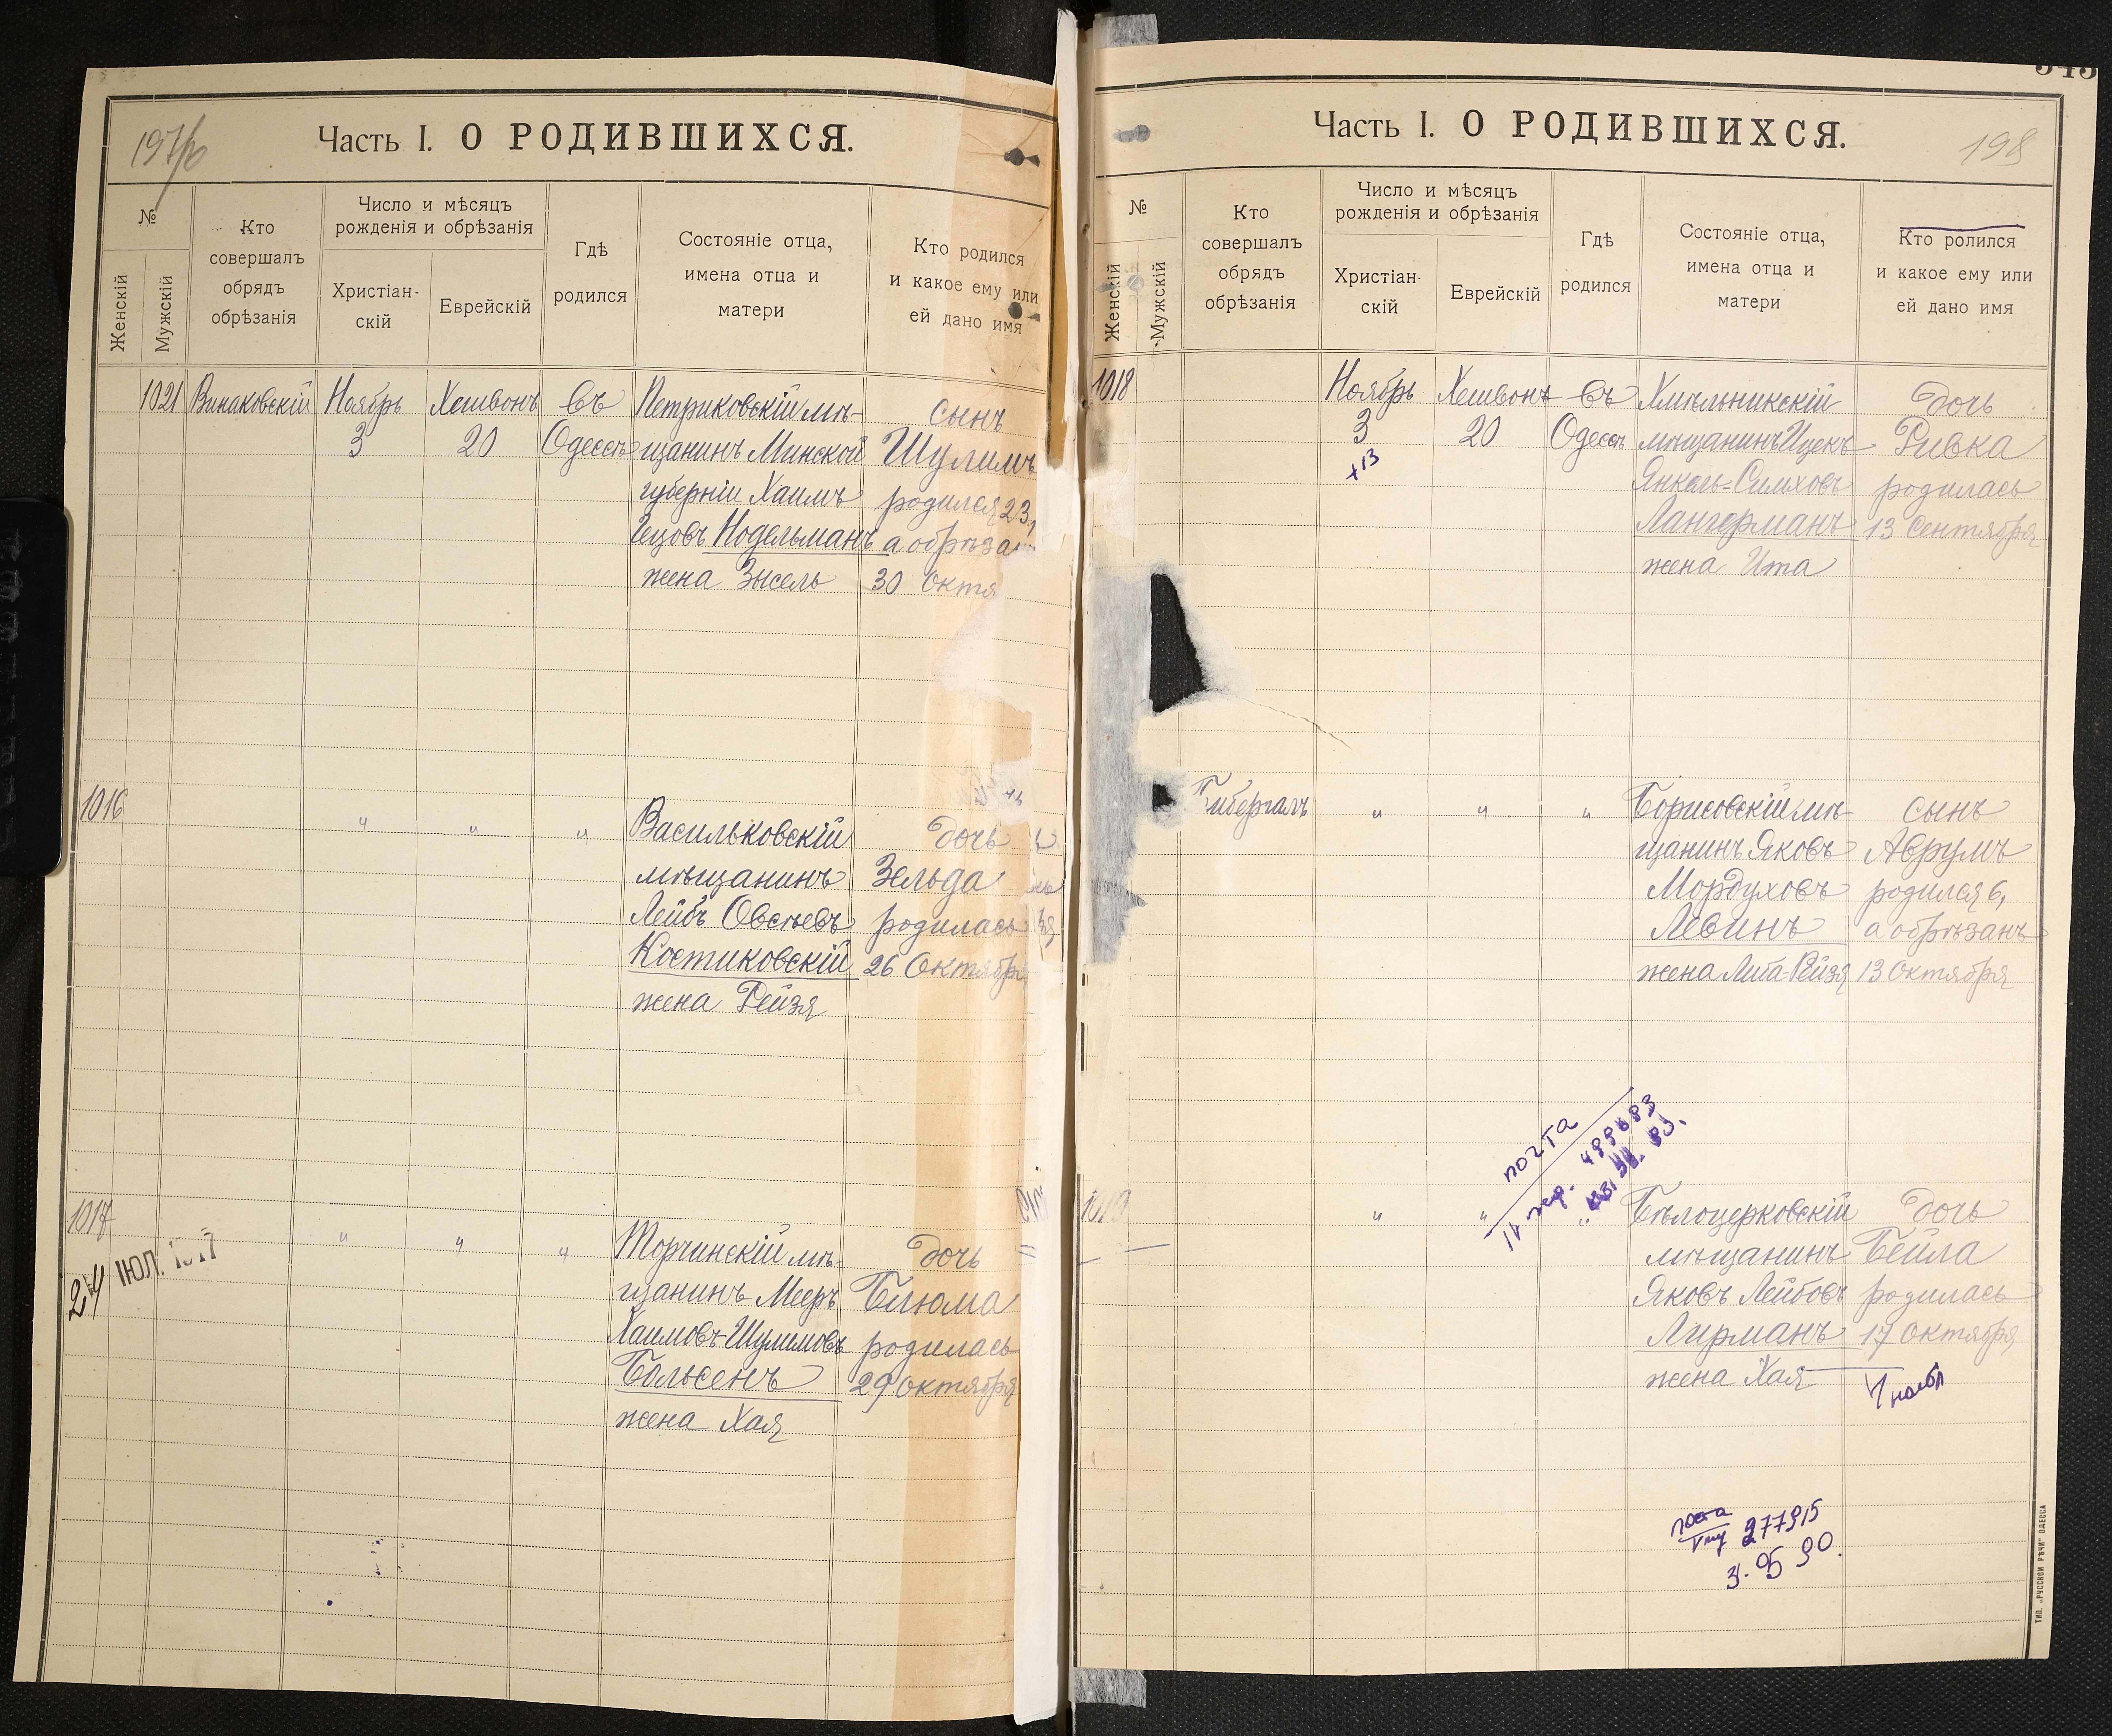 197/б
Часть I. О РОДИВШИХСЯ.
№
Женскій
Мужскій
Кто
совершалъ
обрядъ
обрѣзанія
Число и мѣсяцъ
рожденія и обрѣзанія
Христіан-
скій
Еврейскій
Гдѣ
родился
Состояніе отца,
имена отца и
матери
Кто родился
и какое ему или
ей дано имя
1021
Винаковскій
Ноябрь
3
Хешвонъ
20
въ
Одессѣ
Петриковскій мѣ-
щанинъ Минской
губерніи Хаимъ
Нодельманъ
жена Зысель
сынъ
Шулимъ
родился 23,
а обрѣзанъ
30 Октя
1016
"
"
"
Васильковскій
мѣщанинъ
Лейбъ Овсѣевъ
Костиковскій
жена Рейзя
дочь
Зельда
родилась
26 Октября
1017
24 ІЮЛ. 1917
"
"
"
Торчинскій мѣ-
щанинъ Мееръ
Хаимовъ-Шулимовъ
Больсенъ
жена Хая
дочь
Блюма
родилась
29 Октября
343
198
Часть I. О РОДИВШИХСЯ.
№
Женскій
Мужскій
Кто
совершалъ
обрядъ
обрѣзанія
Число и мѣсяцъ
рожденія и обрѣзанія
Христіан-
скій
Еврейскій
Гдѣ
родился
Состояніе отца,
имена отца и
матери
Кто ролился
и какое ему или
ей дано имя
1018
Ноябрь
3
+13
Хешвонъ
20
въ
Одессѣ
Хмѣльникскій
мѣщанинъ Ицекъ
Янкель-Симховъ
Лангерманъ
жена Ита
дочь
Ривка
родилась
13 Сентября
"
"
"
Борисовскій мѣ-
щанинъ Яковъ
Мордуховъ
Левинъ
жена Рейзя
сынъ
Аврумъ
родился 6,
а обрѣзанъ
13 Октября
почта
1019
"
"
"
Бѣлоцерковскій
мѣщанинъ
Яковъ Лейбовъ
Лирманъ
жена Хая
дочь
Бейла
родилась
17 Октября
почта
277915
3. 95 90.
ТИП. „РУССКОЙ РѢЧИ" ОДЕССА